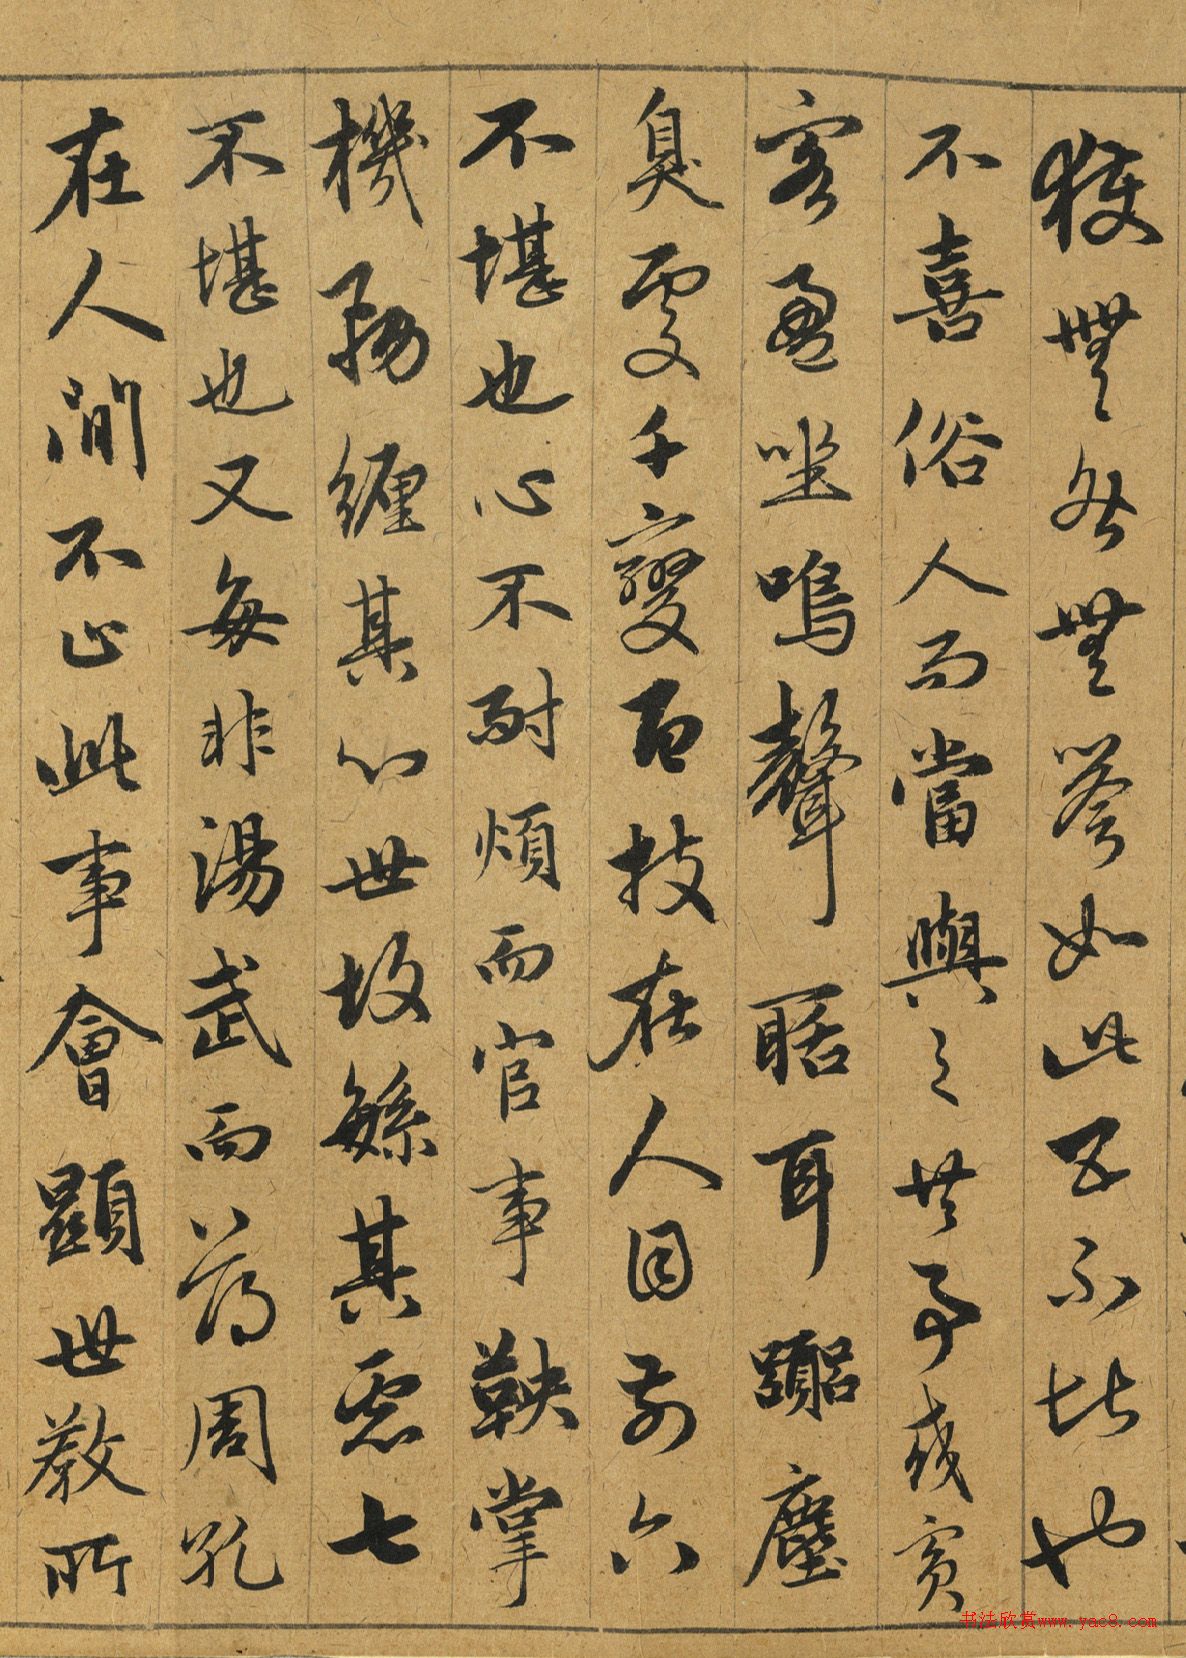 獲無咎無譽如此五不堪也
不喜俗人而當與之共事或賓
客盈坐鳴聲聒耳囂塵
臭處千變百技在人目前六
不堪也心不耐煩而官事鞅掌
機務纏其心世故繇其慮七
不堪也又每非湯武而薄周孔
在人間不止此事會顯世教所
书法欣赏www.yac8.com